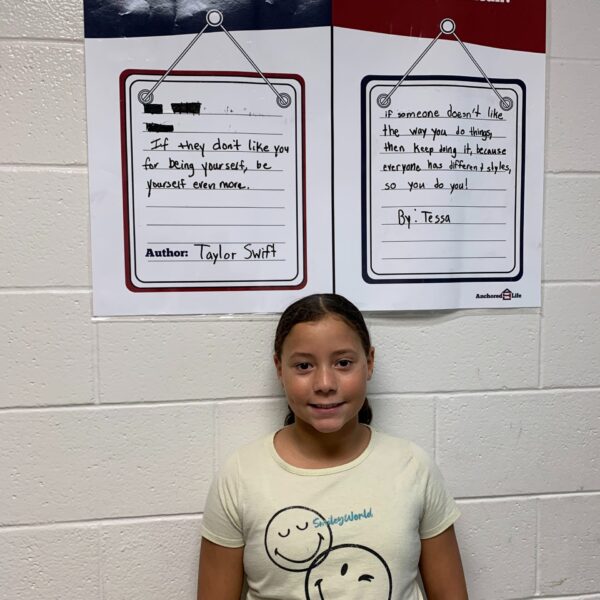 If they don't like you
for being yourself, be
yourself even more.
Author: Taylor Swift
if someone doesn't like
the way you do things,
then keep doing it, because
everyone has different styles,
so you do you!
By: Tessa
Anchored Life
SmileyWorld